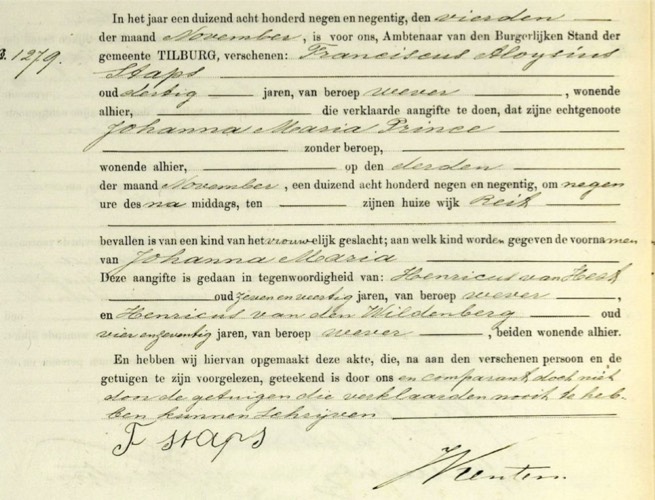 In het jaar een duizend acht honderd negen en negentig, den vierden
der maand November, is voor ons, Ambtenaar van den Burgerlijken Stand der
1279. gemeente TILBURG, verschenen: Franciscus Aloysius
Staps
oud dertig jaren, van beroep wever, wonende
alhier, die verklaarde aangifte te doen, dat zijne echtgenoote
Johanna Maria Prince
zonder beroep,
wonende alhier, op den derden
der maand November, een duizend acht honderd negen en negentig, om negen
ure des na middags, ten zijnen huize wijk Reit
bevallen is van een kind van het vrouwelijk geslacht; aan welk kind worden gegeven de voornamen
van Johanna Maria
Deze aangifte is gedaan in tegenwoordigheid van: Henricus van
oud zeven en veertig jaren, van beroep wever,
en Henricus van den Wildenberg oud
vier en zeventig jaren, van beroep wever, beiden wonende alhier.
En hebben wij hiervan opgemaakt deze akte, die, na aan den verschenen persoon en de
getuigen te zijn voorgelezen, geteekend is door ons en comparant, doch niet
door de getuigen die verklaarden nooit te heb-
ben kunnen schrijven
F staps